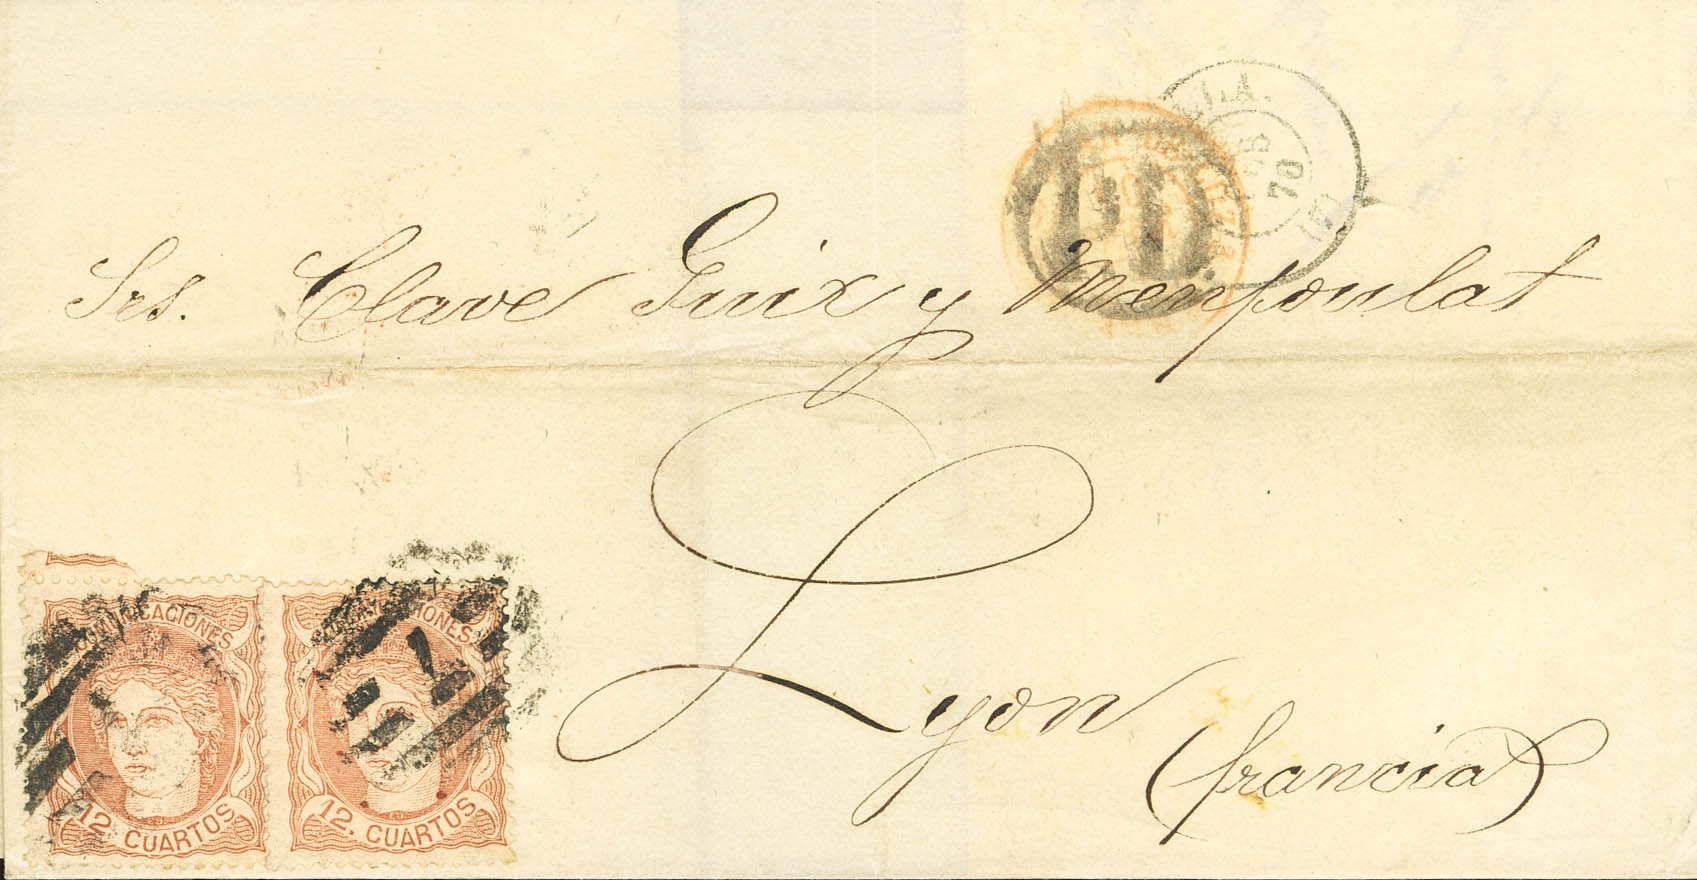 PD
70
Srs. Clavé Guix y Menpoulat
Lyon
(francia)
COMUNICACIONES
12 CUARTOS
COMUNICACIONES
12. CUARTOS